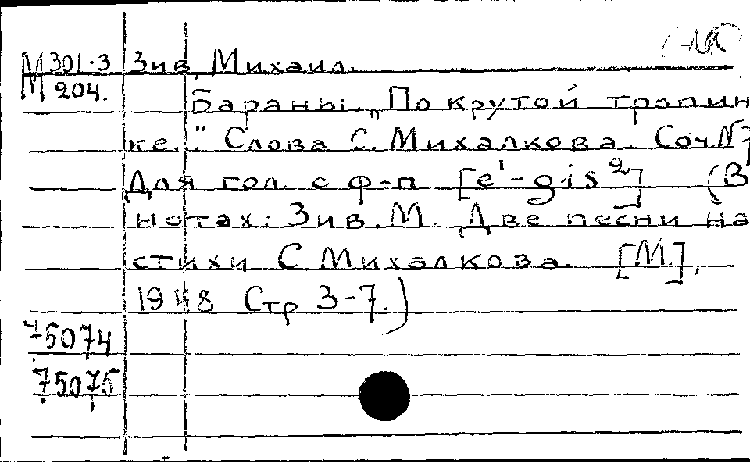 М 301-3 Зив, Михаил.
М 204.
Бараны. „По крутой тропин
ке.." Слова С. Михалкова. Соч. №
Для гол. с ф-п [e¹-gis²] (В
нотах: Зив. М. Две песни на
стихи С Михалкова. [М.],
1948 Стр 3-7.)
75074
75075